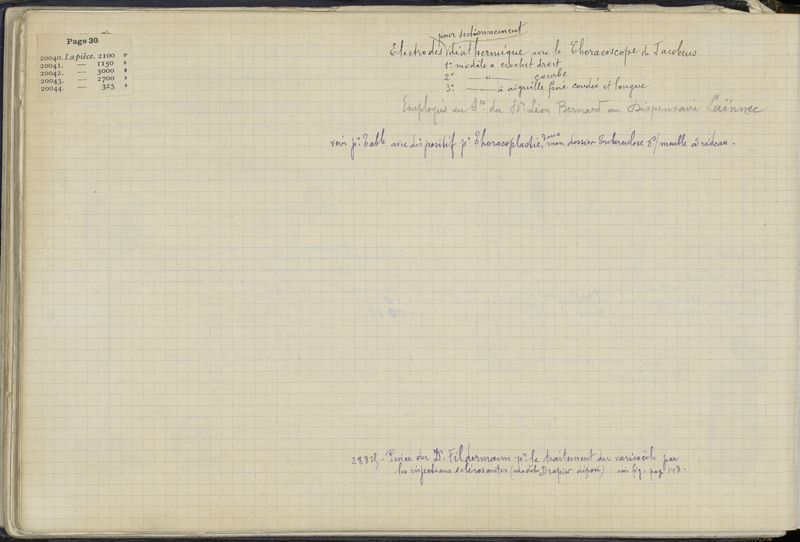 Page 30
20040. La pièce. 2100 »
20041. — 1150 »
20042. — 3000 »
20043. — 2700 »
20044. — 325 »
pour sectionnement
Electrodes diathermique avec le Thoracoscope de Jacobeus
1° modèle a crochet droit
2° — „ — courbe
3° — „ — à aiguille fine coudée et longue
Employé au Sce du Dr Léon Bernard au Dispensaire Laënnec
voir pr Table avec dispositif pr Thoracoplastie, dans mon dossier Tuberculose s/ meuble à rideau.
Pince du Dr. Fildermann pr. le traitement du varicocèle par
les injections sclérosantes (modèle Drapier déposé) voir fig. page 148.